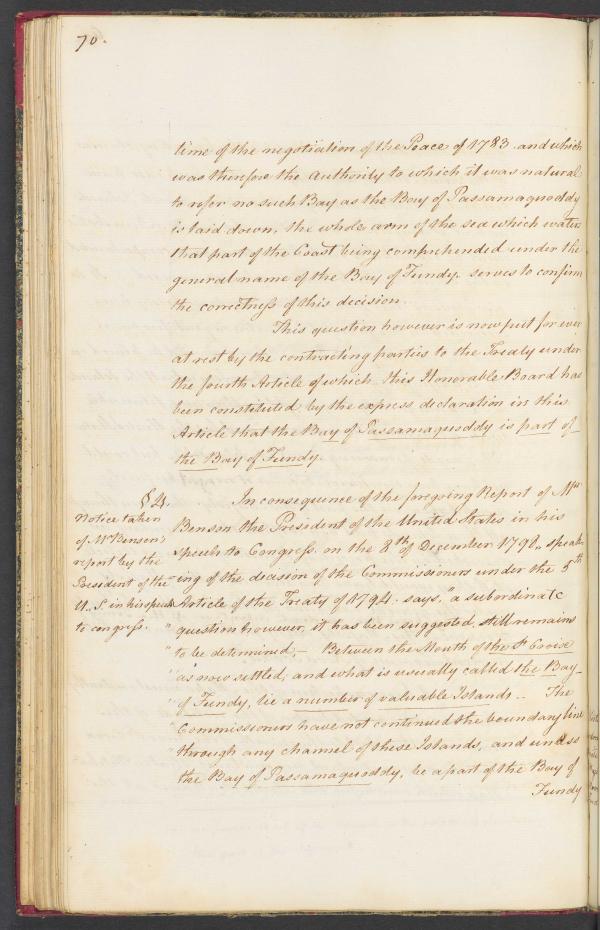 70.
time of the negotiation of the Peace of 1783. and which
was therefore the Authority to which it was natural
to refer no such Bay as the Bay of Passamaquoddy
is laid down, the whole arm of the sea which waters
that part of the Coast being comprehended under the
general name of the Bay of Fundy. serves to confirm
the correctness of this decision.
This question however is now put for ever
at rest by the contracting parties to the Treaty under
the fourth Article of which this Honorable Board has
been constituted by the express declaration in this
Article that the Bay of Passamaquoddy is part of
the Bay of Fundy.
§ 4.
Notice taken
of Mr Benson's
report by the
President of the
U. S. in his speech
to congress.
In consequence of the foregoing Report of Mr
Benson the President of the United States in his
speech to Congress. on the 8th of December 1798, speak-
ing of the decision of the Commissioners under the 5th
Article of the Treaty of 1794. says, "a subordinate
" question however, it has been suggested, still remains
" to be determined,— Between the Mouth of the St Croix
" as now settled, and what is usually called the Bay
" of Fundy, lie a number of valuable Islands.. The
" Commissioners have not continued the boundary line
" through any channel of these Islands, and unless
" the Bay of Passamaquoddy, be a part of the Bay of
Fundy